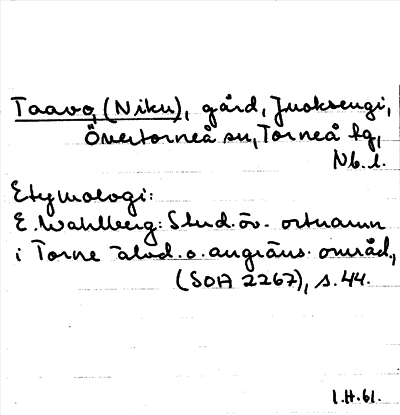 Taavo, (Niku), gård, Juoksengi,
Övertorneå sn, Torneå tg,
Nb. l.
Etymologi:
E. Wahlberg: Stud. öv. ortnamn
i Torne älvd. o. angräns. områd.,
(SOA 2267), s. 44.
1.H.61.